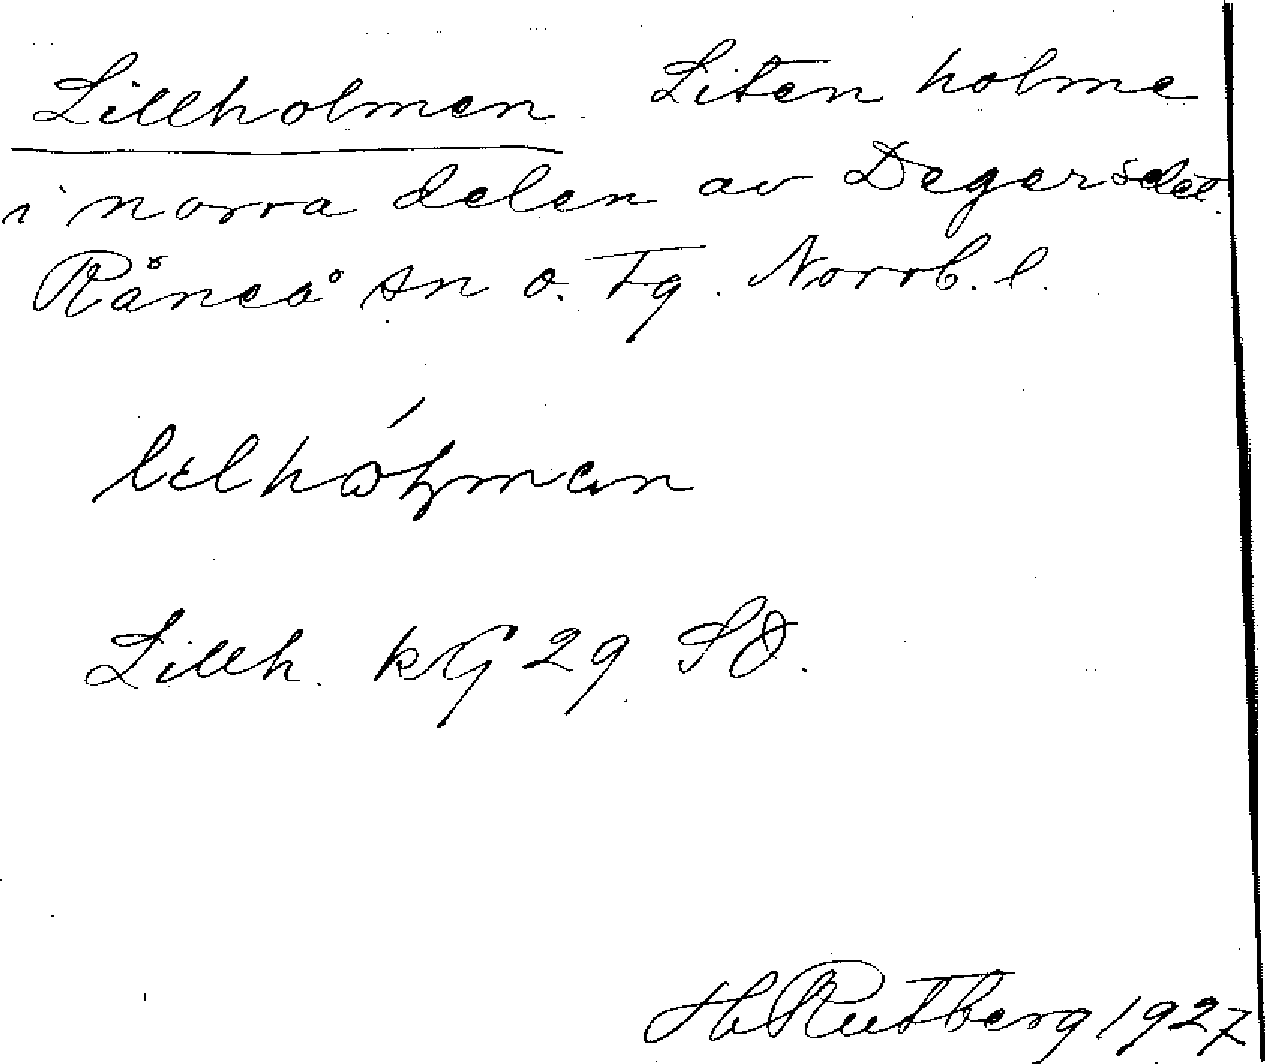 Lillholmen. Liten holme
i norra delen av Degerselet.
Råneå sn o. Tg. Norrb. l.
Lillh. KG 29 SO.
H. Rutberg 1927